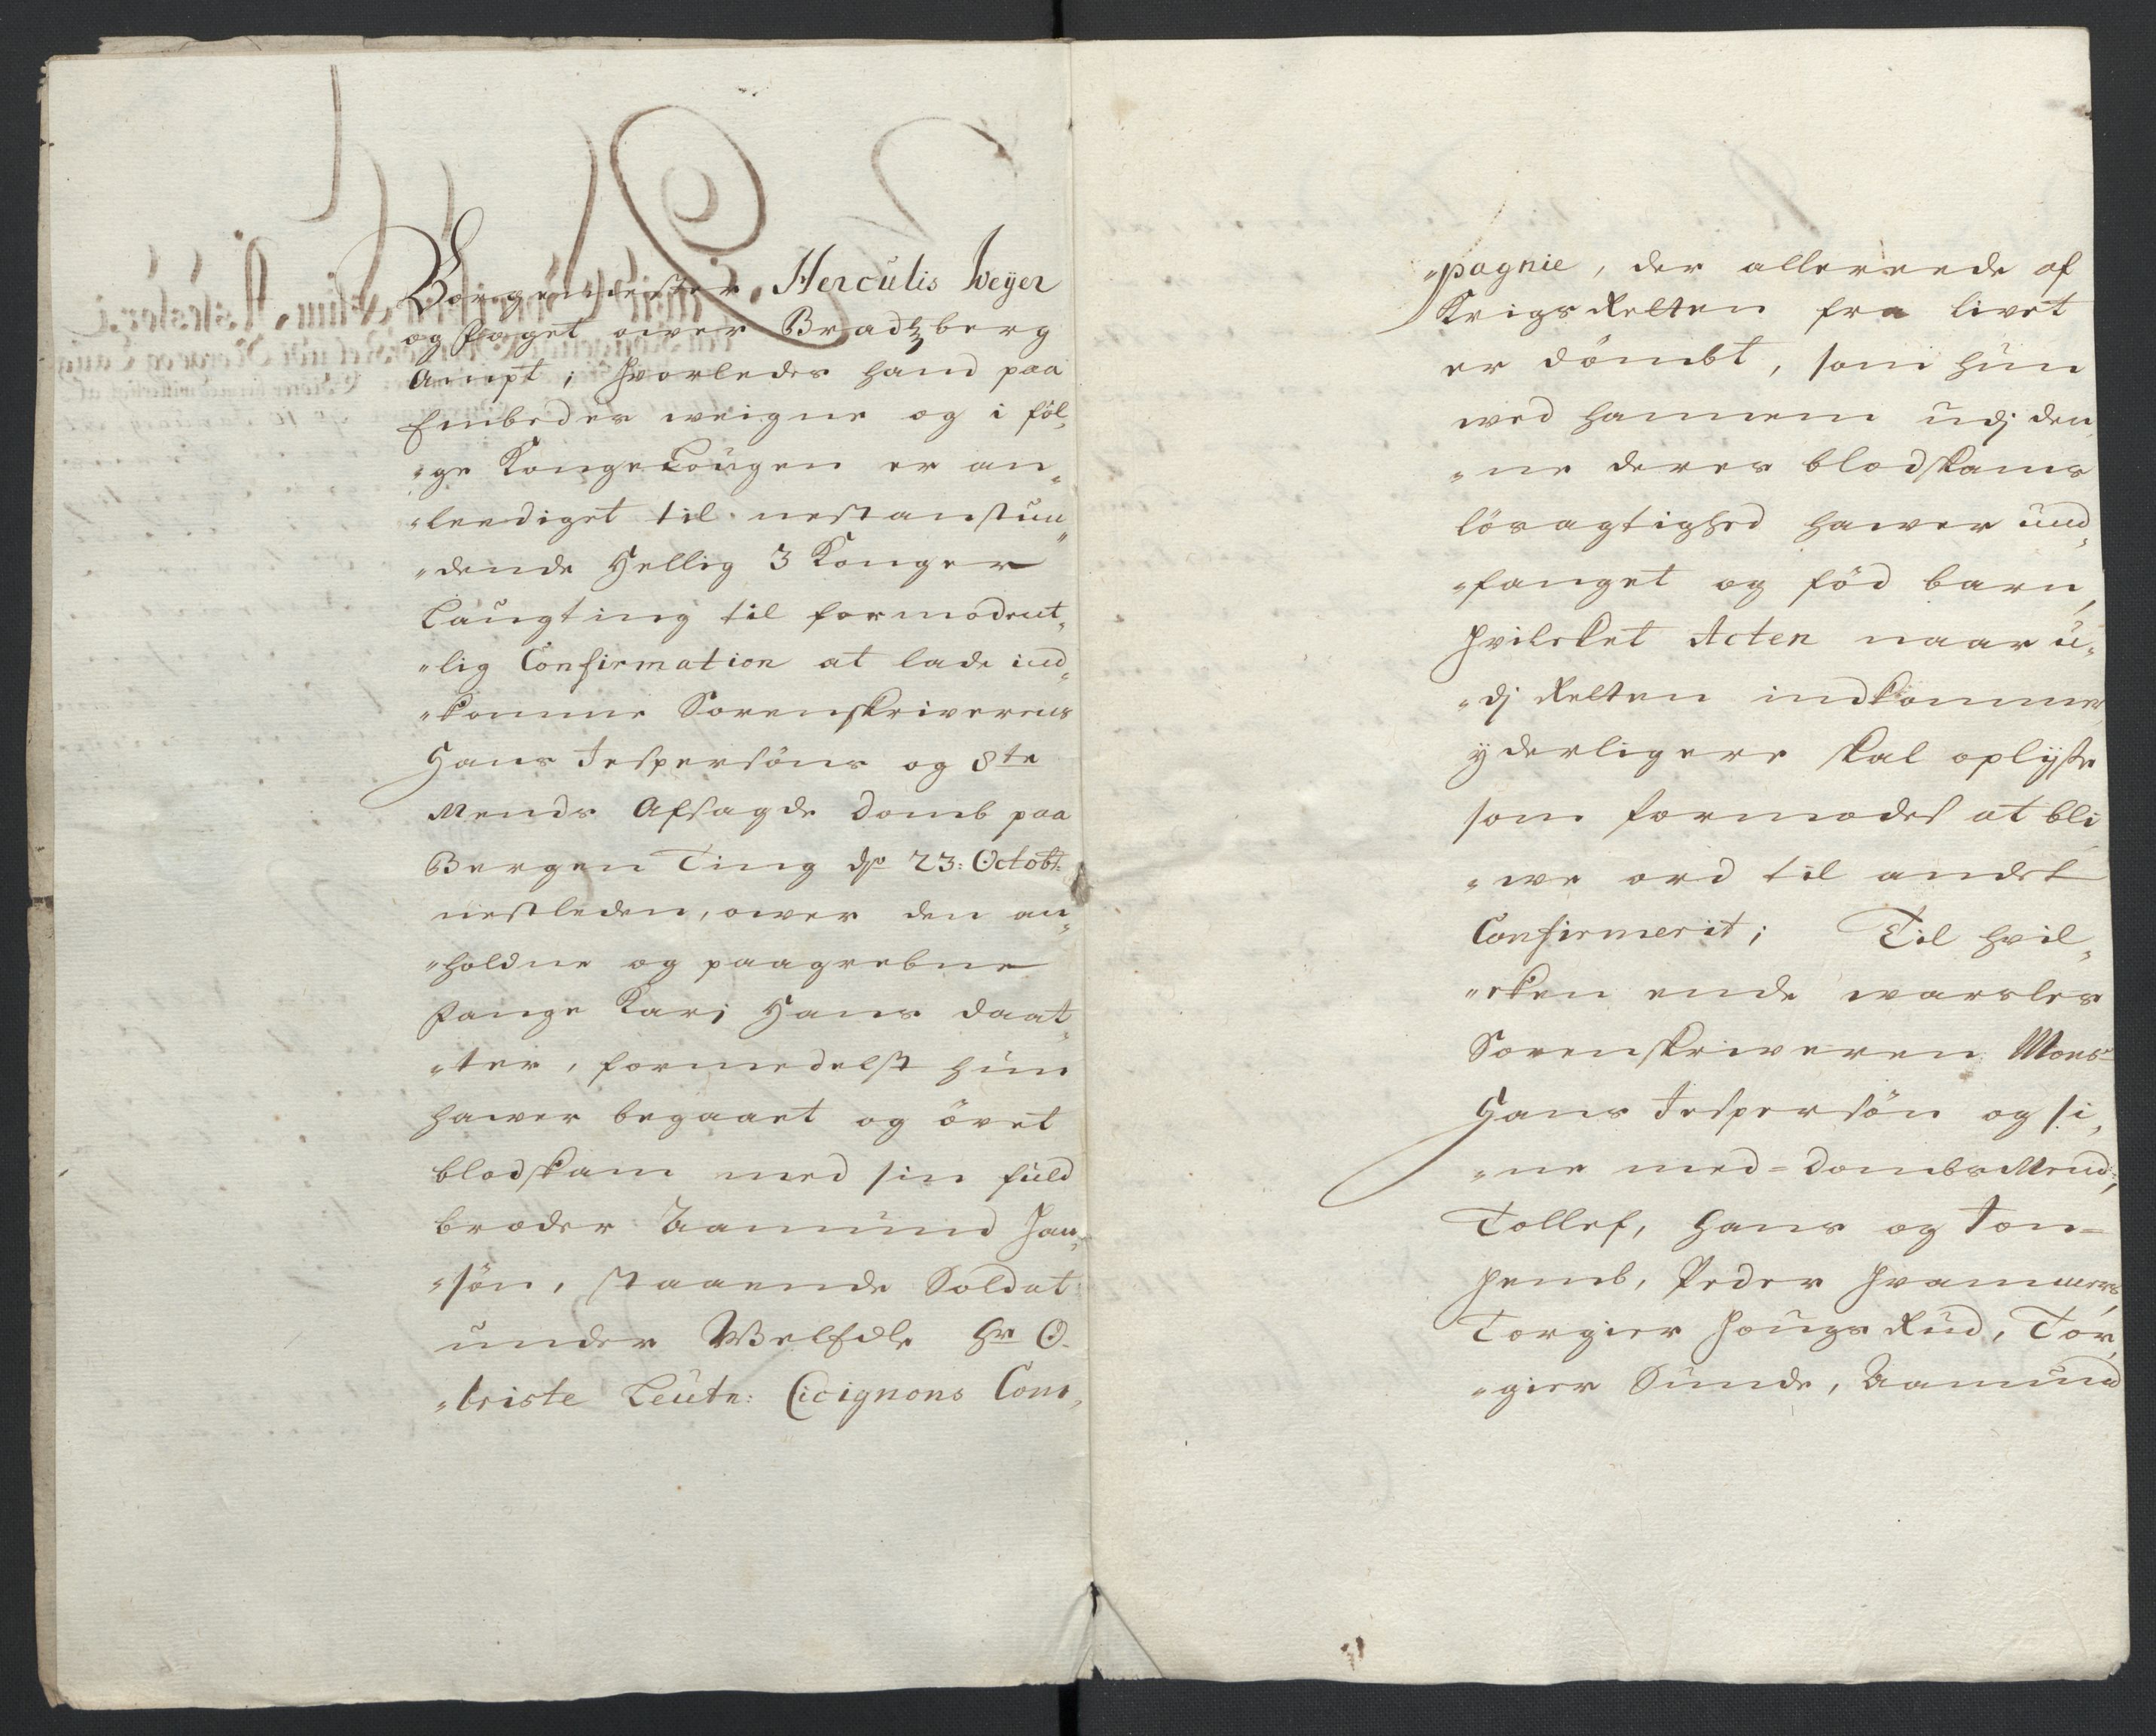 Borgemester Herculis Weyer
og foget ower Bradtzberg
Ampt; hworledes hand paa
Embedes weigne og i föl„
„ge KongeLougen er an„
„leediget til nestanstun„
„dende Hellig 3 Konger
Laugting til formodent„
„lig Confirmation at lade ind„
„komme Sorenskriverens
Hans Jespersöns og 8te
Mends Afsagde domb paa
Bergen Ting dn 23: Octobr:
nestleden, ower den an„
„holdne og paagrebne
fange Kari Hans daat„
„ter, formedelst hun
hawer begaaet og övet
blodskam med sin fuld
broder Aamund Han„
„sön, staaende Soldat
under Welbdle Hr O„
„briste Leutn: Cicignons Com„
„pagnie, der allereede af
KrigsRetten fra livet
er dömbt, som hun
wed hannem udj den„
„ne deres blodskams
lösagtighed hawer und„
„fanget og föd barn,
hvilcket Acten naar u„
„dj Retten indkommer
yderligere skal oplyse
som formodes at bli„
„we ord til andet
Confirmerit; Til hvil„
„cken ende warsles
Sorenskriweren Monsr
Hans Jespersön og si„
„ne med=dombsMend;
Tollef, Hans og Jon=
hemb, Peder
Torgier HougsRud, Tor„
„gier Sunde, Aamund